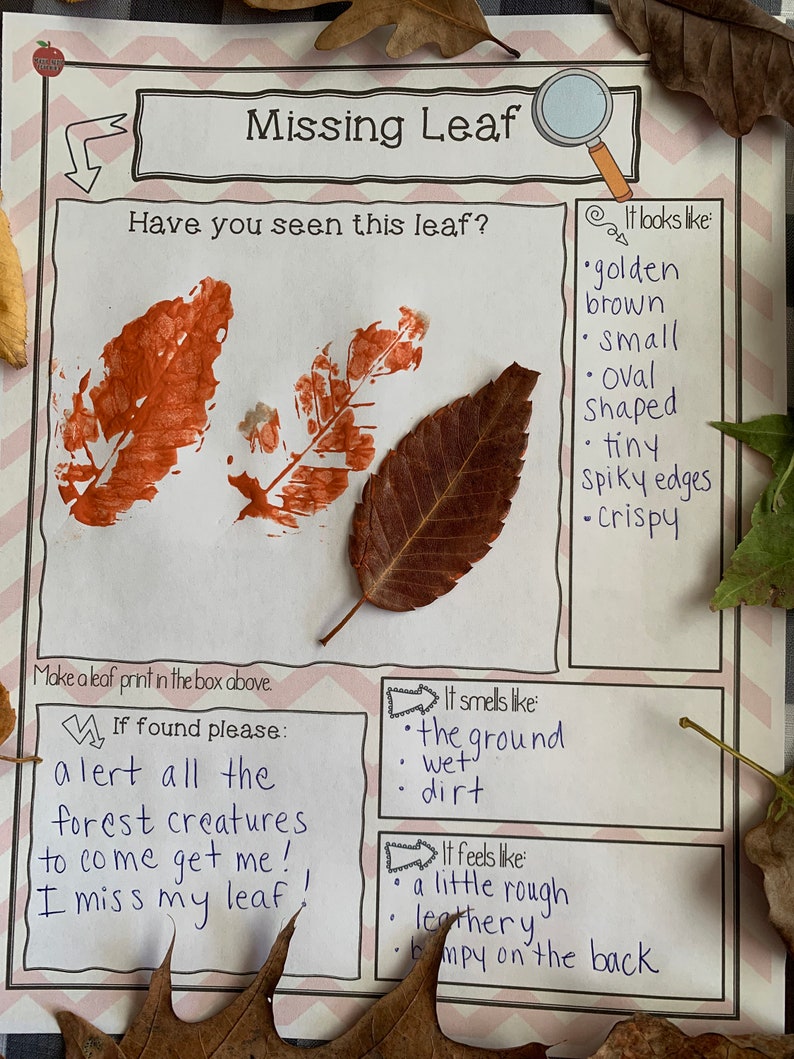 Missing Leaf
Have you seen this leaf?
It looks like:
• golden
brown
• small
• oval
shaped
• tiny
spiky edges
• crispy
Make a leaf print in the box above.
If found please:
alert all the
forest creatures
to come get me!
I miss my leaf!
It smells like:
• the ground
• wet
• dirt
It feels like:
• a little rough
• leathery
• bumpy on the back